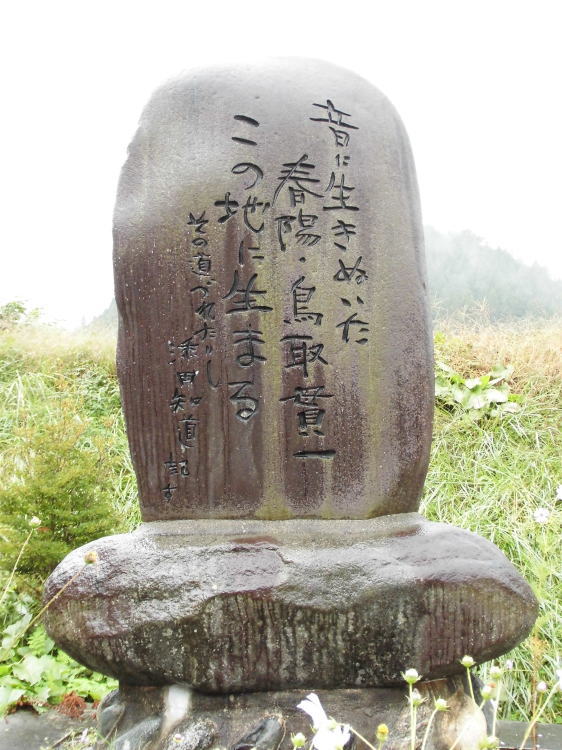 音に生きぬいた
春陽・鳥取貫一
この地に生まる
その道づれたりし
添田知道 記す